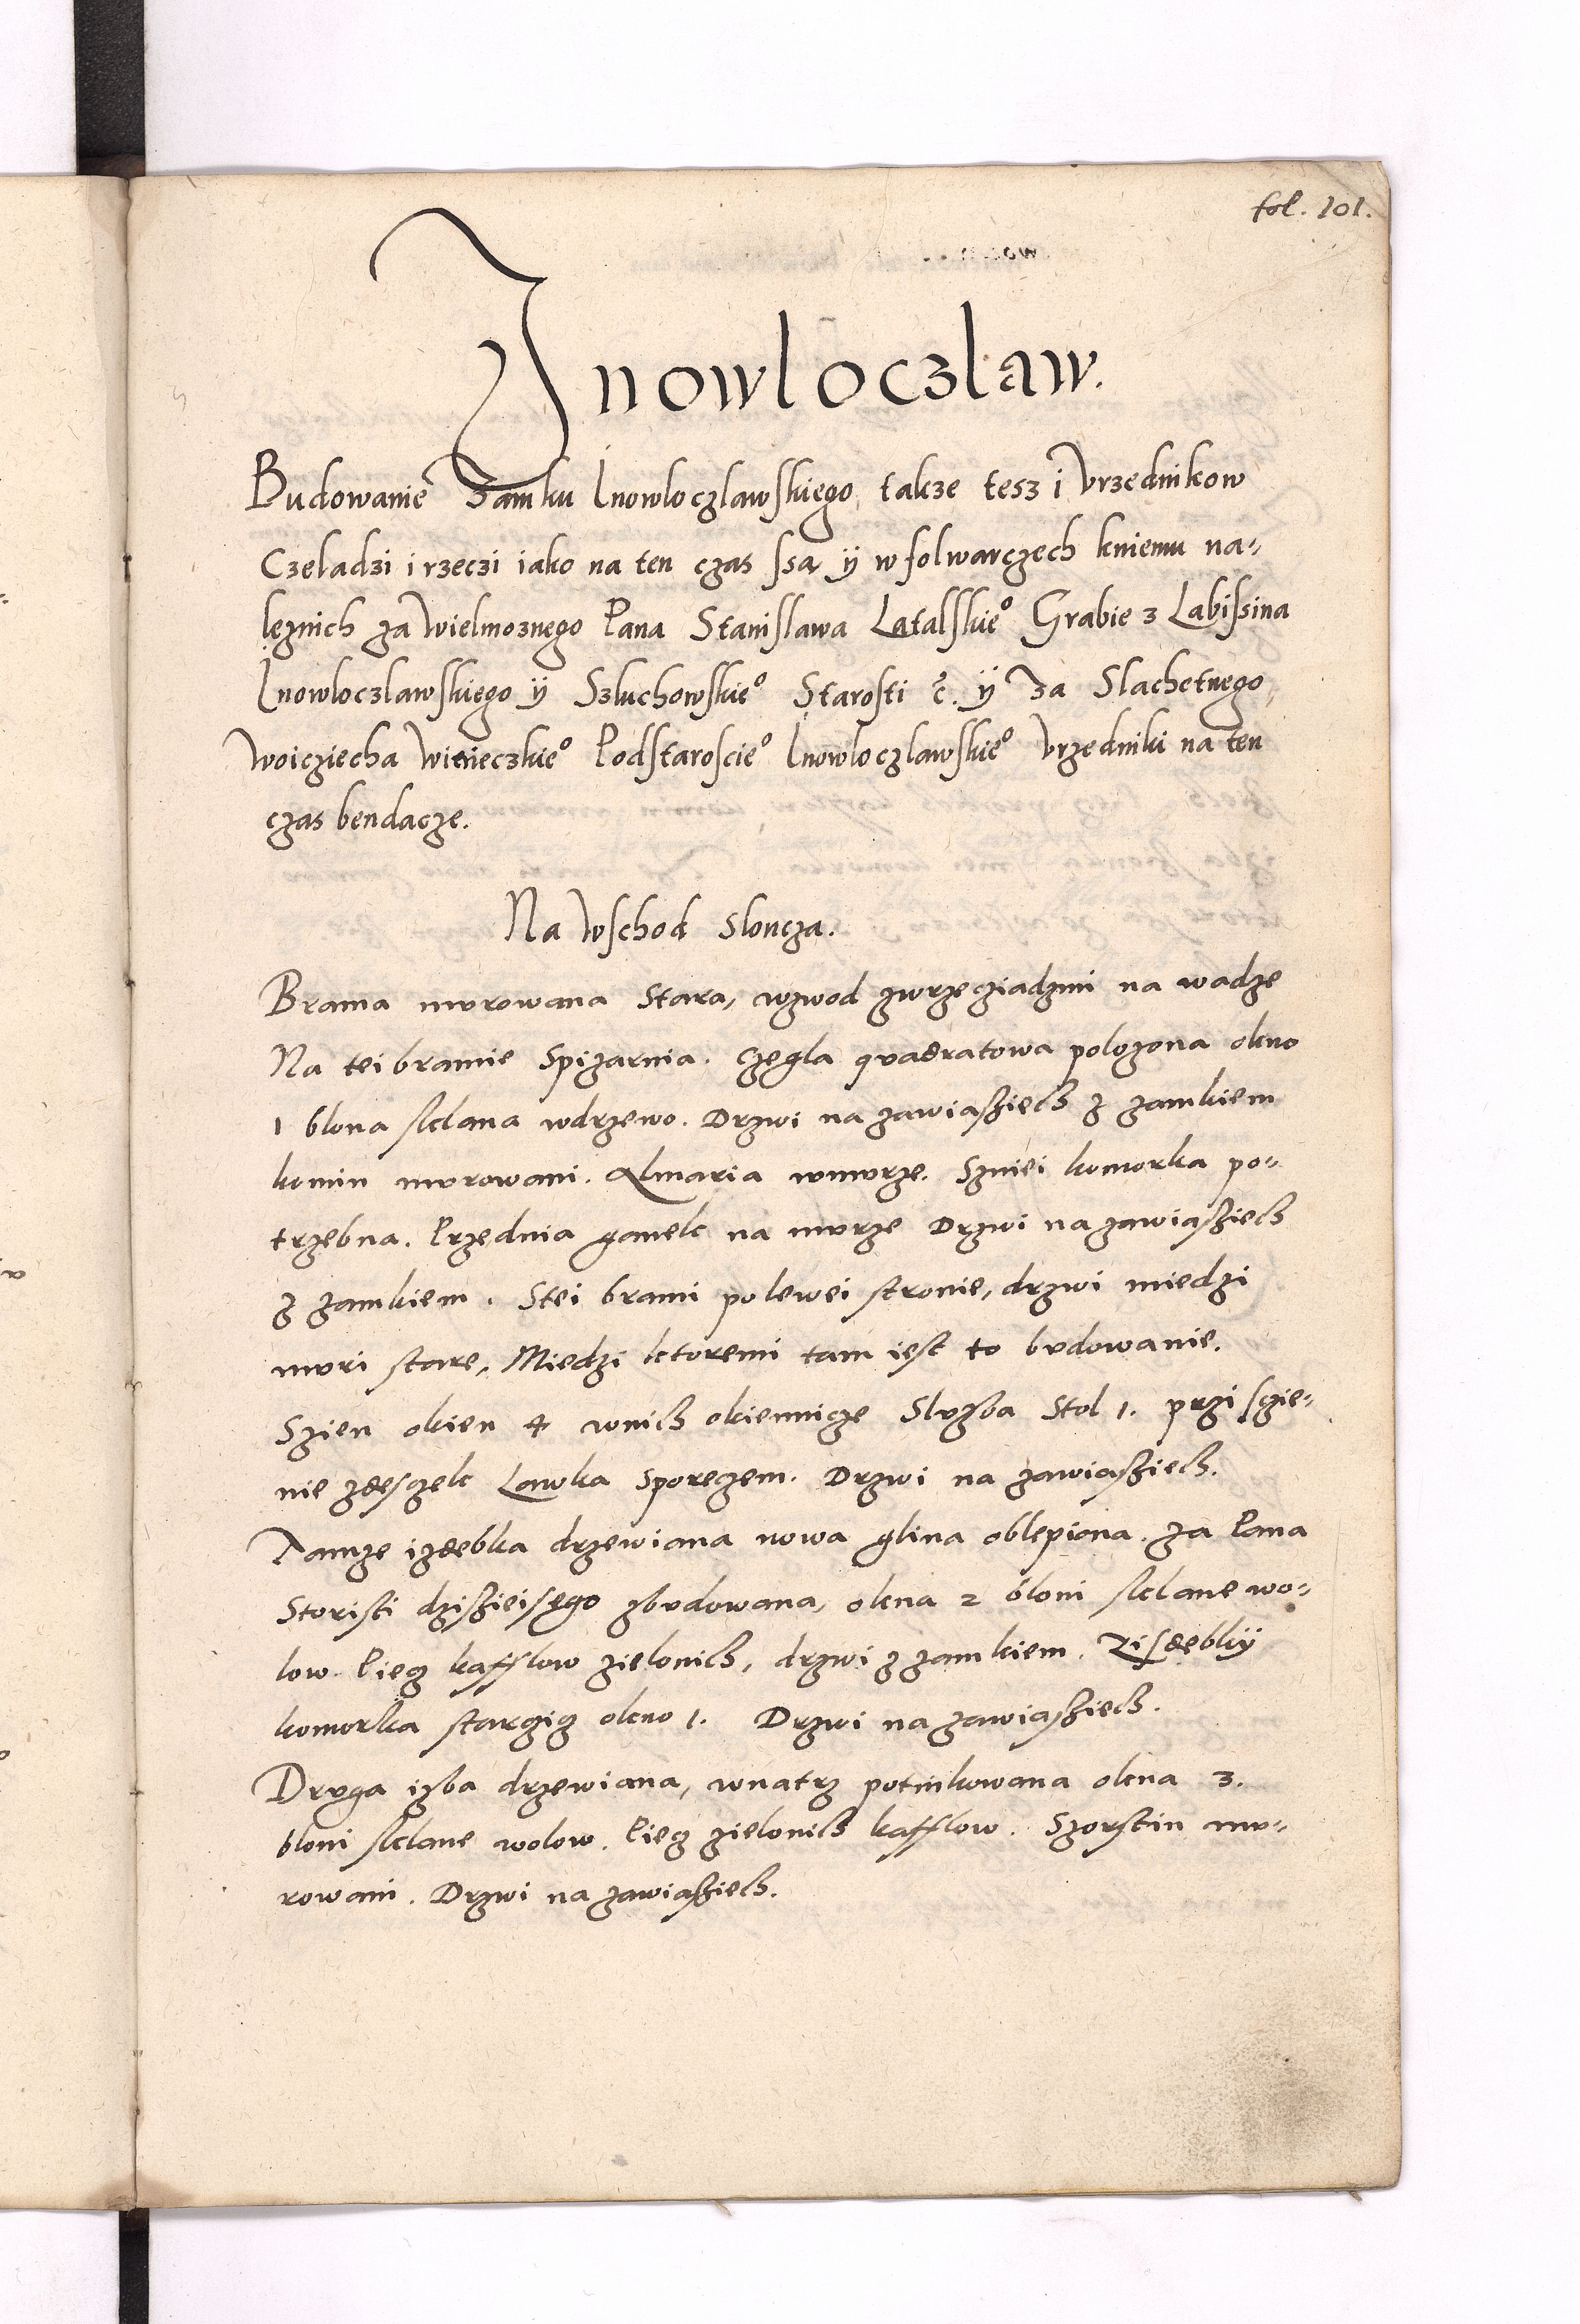 fol. 101.
Inowloczlaw.
Budowanie Zamku Inowloczlawskiego, takze tesz i Vrzednikow
Czeladzi i rzeczi iako na ten czas ssą ÿ w folwarczech kniemu na-
leznich za Wielmoznego Pana Stanislawa Latalskieº Grabie z Labissina
Inowloczlawskiego ÿ Szluchowskieº Starosti ÿ za Slachetnego
Woicziecha Podstaroscieº Inowloczlawskieº Vrzedniki na ten
czas bendacze.
Na Wschod Sloncza.
Brama mvrowana Stara, wzwod zwrzecziadzmi na wadze
Na tei bramie Spizarnia. Czegla qvadratowa polozona okno
1 blona sklana wdrzewo. Drzwi na zawiasziech z zamkiem
komin mvrowani. Almaria wmvrze. Szniei komorka po-
trzebna. Przednia ganek na mvrze Drzwi na zawiasziech
z zamkiem. Stei brami po lewei stronie, drzwi miedzi
mvri stare, Miedzi ktoremi tam iest to bvdowanie.
Szien okien 4 wnich okiennicze Slvzba Stol 1. przi sczie-
nie zdesczek Lawka Sporeczem. Drzwi na zawiasziech.
Tamze izdebka drzewiana nowa glina oblepiona. za Pana
Staristi dziszieisego zbvdowana, okna 2 bloni sklane wo-
low. Piecz kafflow zielonich, drzwi z zamkiem. Zisdebkÿ
komorka okno 1. Drzwi na zawiasziech.
Drvga izba drzewiana, wnatrz potinkowana okna 3.
bloni sklane wolow. Piecz zielonich kafflow. Szorstin mv-
rowani. Drzwi na zawiasziech.